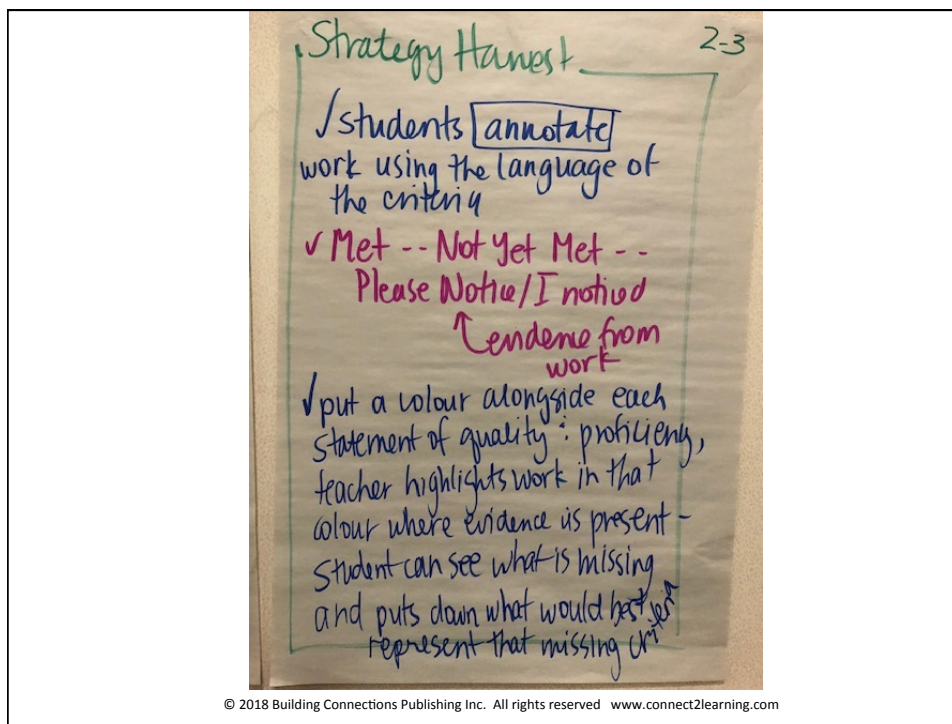 Strategy Harvest 2-3
✓ students annotate
work using the language of
the criteria
✓ Met -- Not Yet Met --
Please Notice/I noticed
evidence from
work
✓ put a colour alongside each
statement of quality : proficiency,
teacher highlights work in that
colour where evidence is present -
student can see what is missing
and puts down what would best
represent that missing criteria
© 2018 Building Connections Publishing Inc. All rights reserved www.connect2learning.com